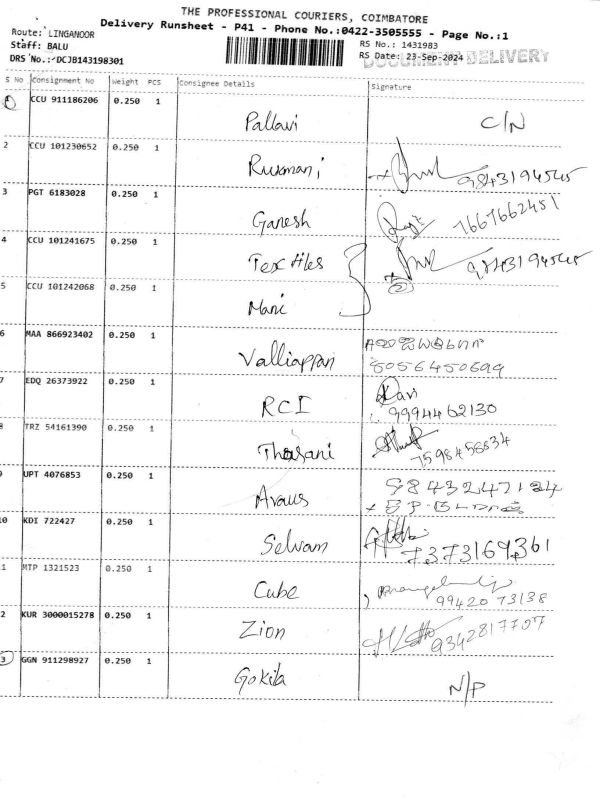 THE PROFESSIONAL COURIERS, COIMBATORE
Delivery Runsheet - P41 - Phone No.:0422-3505555 - Page No.:1
Route: LINGANOOR
Staff: BALU
RS No.: 1431983
DRS No.: DCJB143198301
RS Date: 23-Sep-2024
DOCUMENT DELIVERY
S No Consignment No Weight PCS Consignee Details Signature
1 CCU 911186206 0.250 1
Pallavi C/N
2 CCU 101230652 0.250 1
Rukmani
3 PGT 6183028 0.250 1
Ganesh 7667662451
4 CCU 101241675 0.250 1
Textiles
5 CCU 101242068 0.250 1
Mani
6 MAA 866923402 0.250 1
Valliappan
8056450699
7 EDQ 26373922 0.250 1
RCI Ravi
9994462130
8 TRZ 54161390 0.250 1
Thasani 7598456834
9 UPT 4076853 0.250 1
Avaus
10 KDI 722427 0.250 1
Selvam 7373169361
1 MTP 1321523 0.250 1
Cube
99420 73138
2 KUR 3000015278 0.250 1
Zion 9342817707
3 GGN 911298927 0.250 1
Gokila N/P